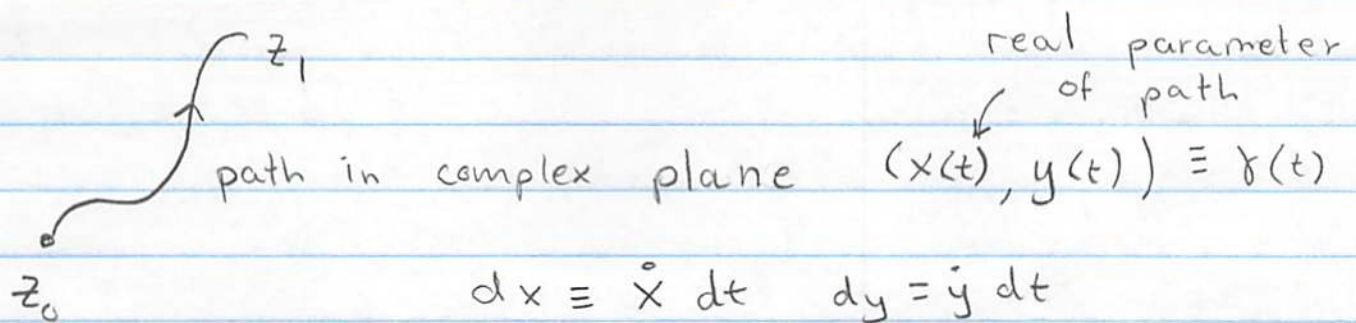 z₁
real parameter
of path
path in complex plane (x(t), y(t)) ≡ γ(t)
z₀
dx ≡ ẋ dt dy = ẏ dt